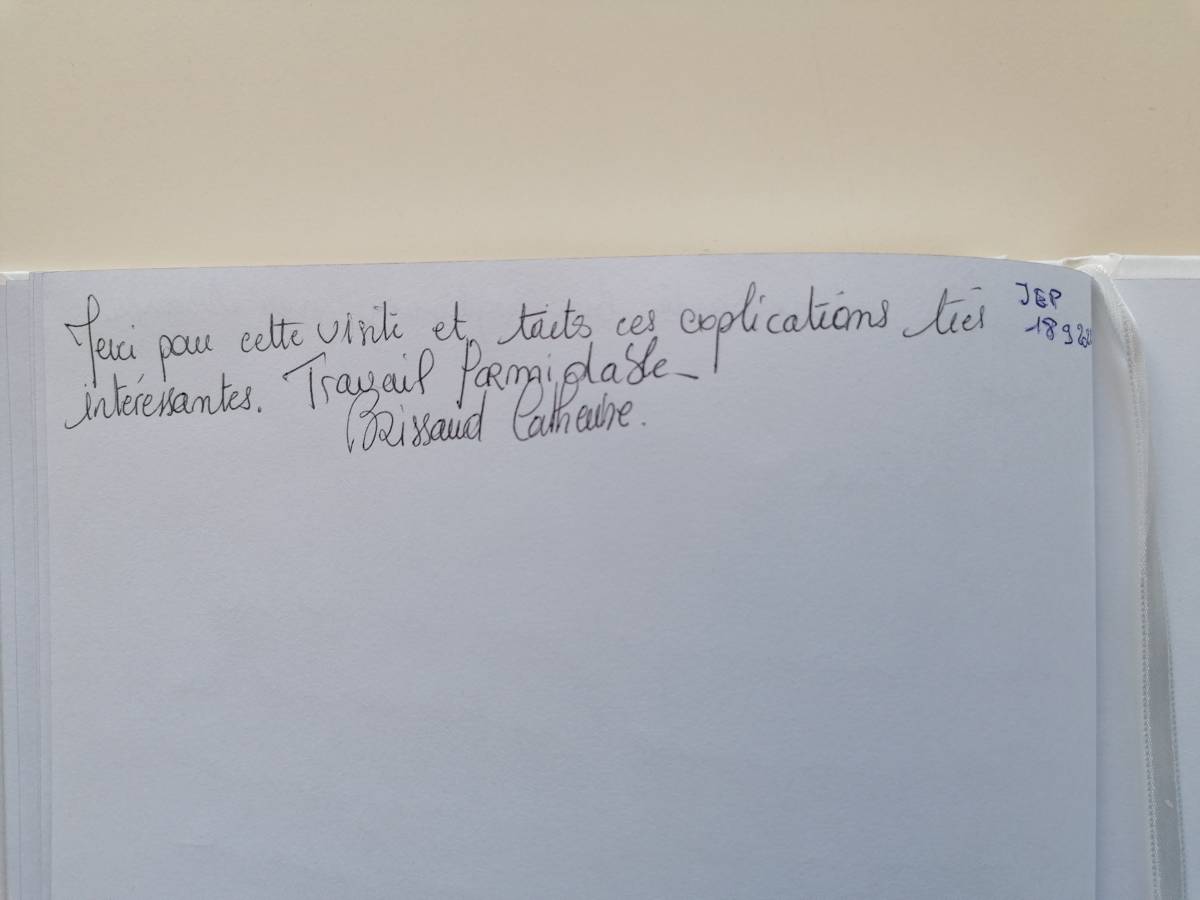 Merci pour cette visite et toutes ces explications très
intéressantes. Travail formidable
Brissaud Catherine.
JEP
18 9